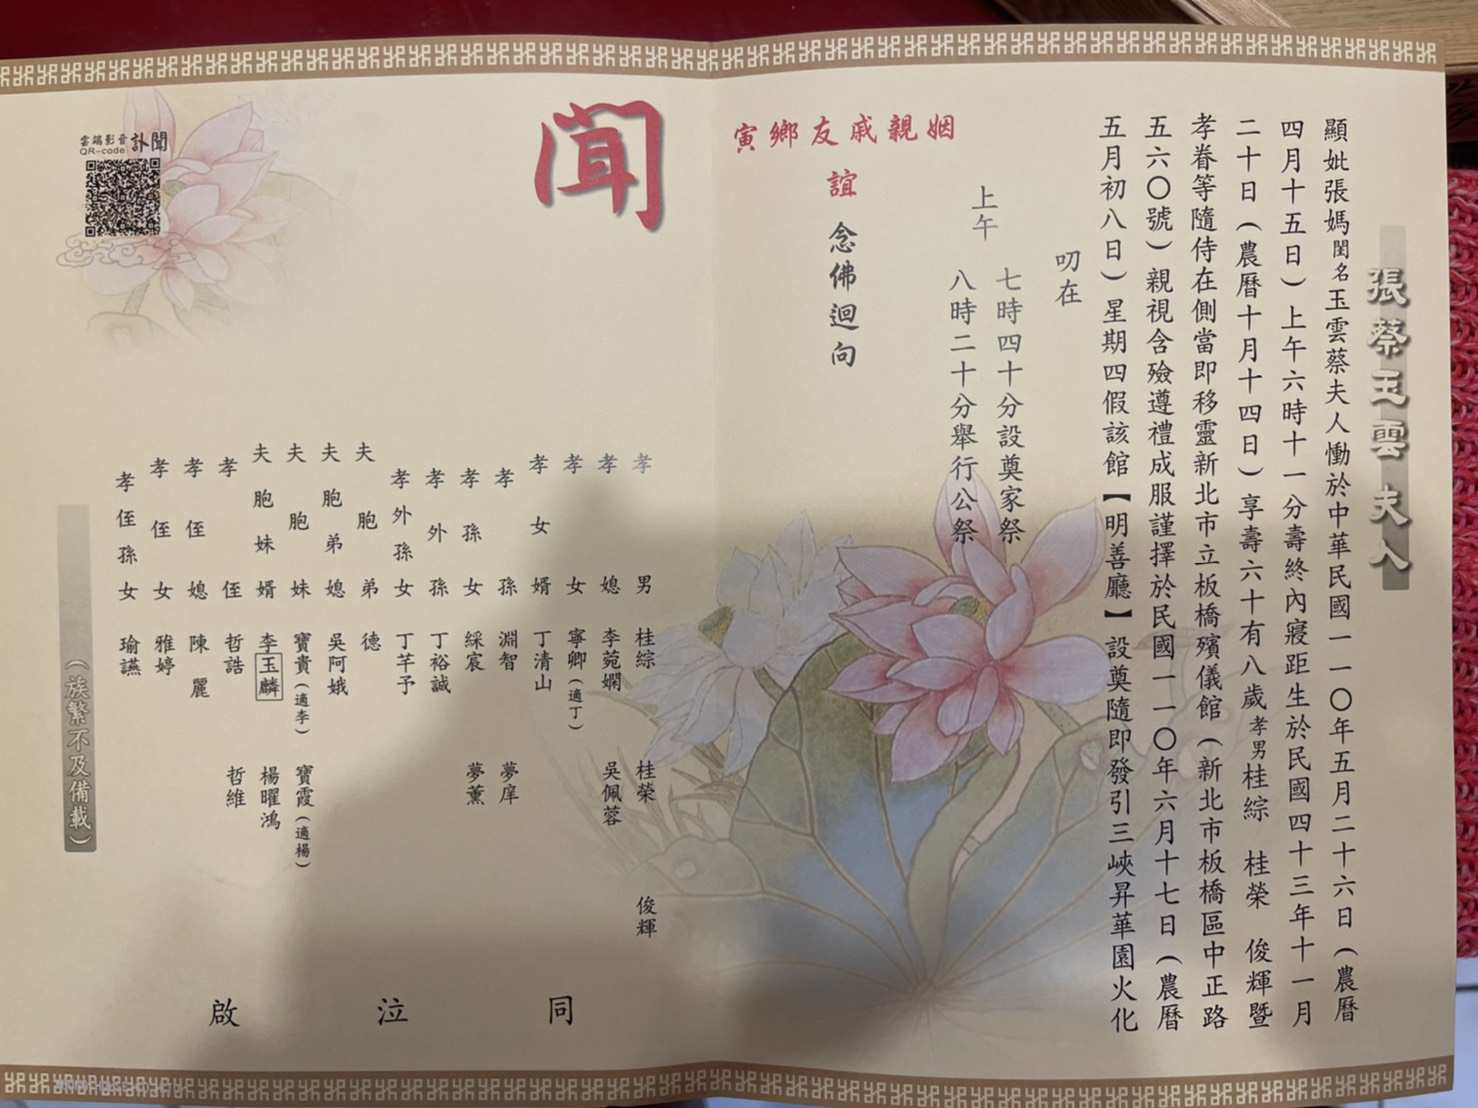 張蔡玉雲夫人
顯妣張媽閨名玉雲蔡夫人慟於中華民國一一〇年五月二十六日(農曆
四月十五日)上午六時十一分壽終內寢距生於民國四十三年十一月
二十日(農曆十月十四日)享壽六十有八歲孝男桂綜 桂榮 俊輝暨
孝眷等隨侍在側當即移靈新北市立板橋殯儀館(新北市板橋區中正路
五六〇號)親視含殮遵禮成服謹擇於民國一一〇年六月十七日(農曆
五月初八日)星期四假該館【明善廳】設奠隨即發引三峽昇華園火化
叨在
上午 七時四十分設奠家祭
八時二十分舉行公祭
寅鄉友戚親姻
誼 念佛迴向
聞
孝男 桂綜 桂榮 俊輝
孝媳 李菀嫻 吳佩蓉
孝女 寧卿(適丁)
孝女婿 丁清山
孝孫 淵智 夢庠
孝孫女 綵宸 夢薰
孝外孫 丁裕誠
孝外孫女 丁芊予
夫胞弟 德
夫胞弟媳 吳阿娥
夫胞妹 寶貴(適李) 寶霞(適楊)
夫胞妹婿 李玉麟 楊曜鴻
孝侄 哲誥 哲維
孝侄媳 陳麗
孝侄女 雅婷
孝侄孫女 瑜讌
同 泣 啟
(族繁不及備載)
雲端影音訃聞
QR-code